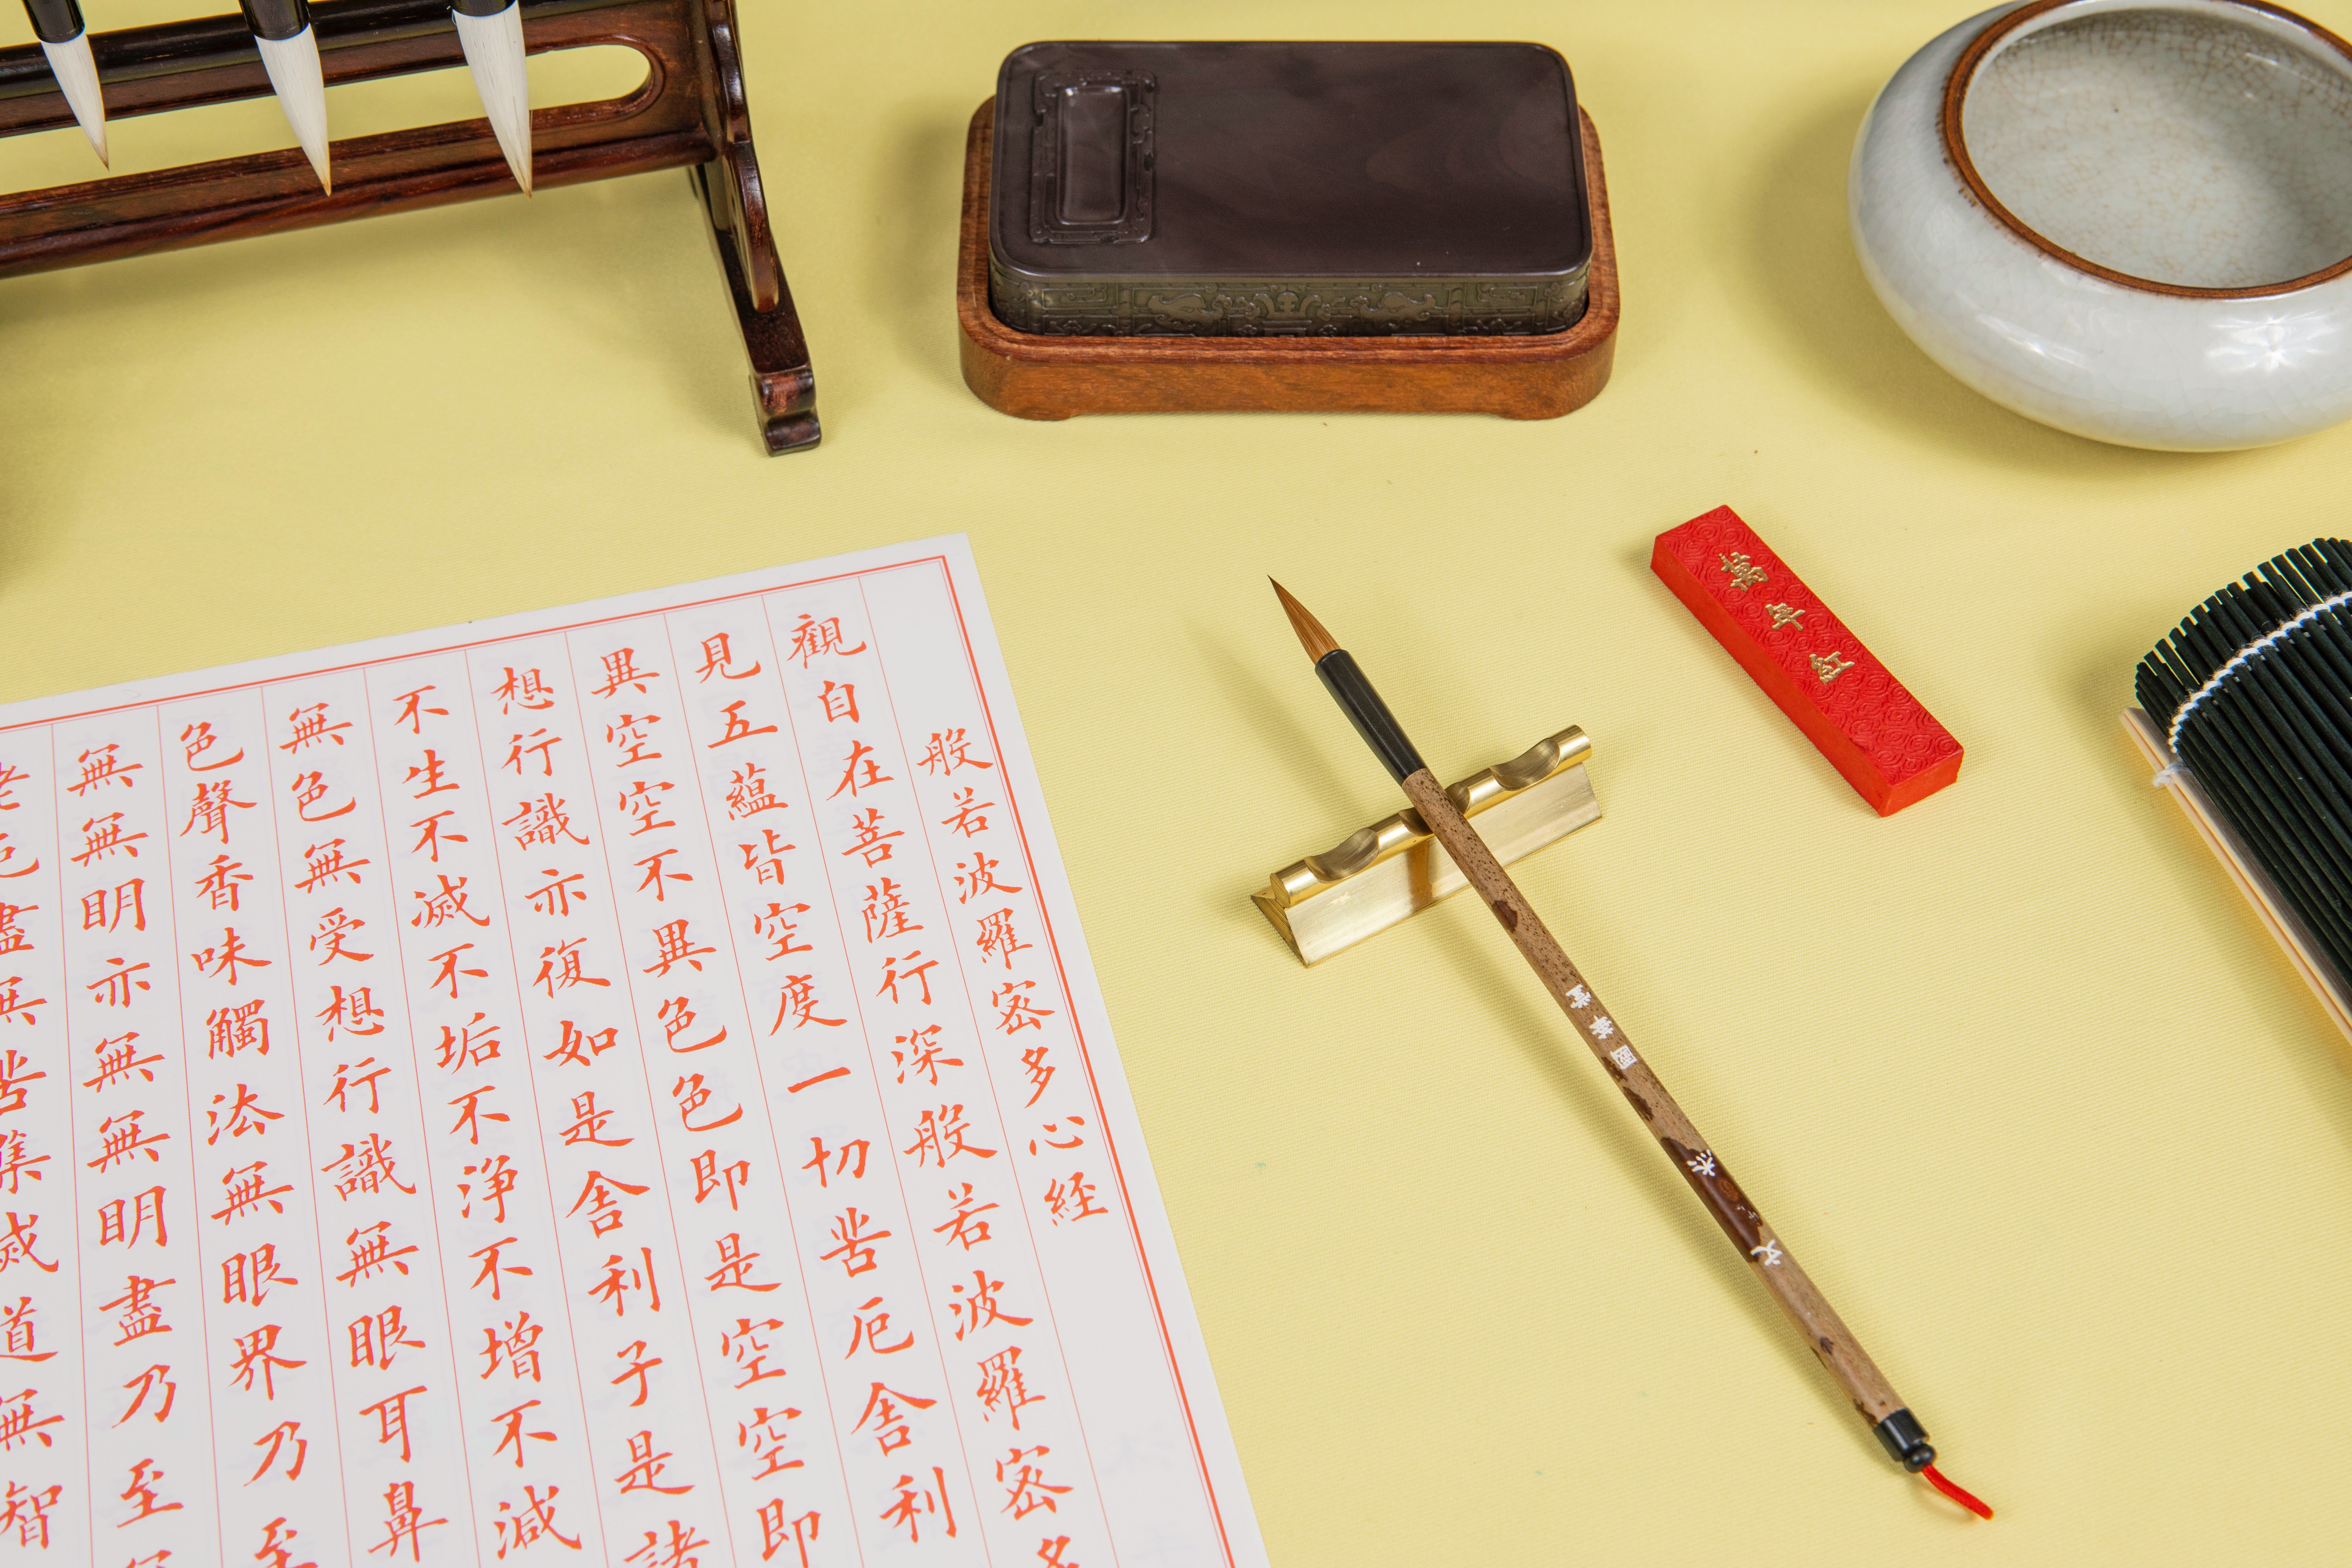 般若波羅密多心経
觀自在菩薩行深般若波羅密多
見五蘊皆空度一切苦厄舍利
異空空不異色色即是空空即
想行識亦復如是舍利子是諸
不生不滅不垢不淨不增不減
無色無受想行識無眼耳鼻
色聲香味觸法無眼界乃至
無無明亦無無明盡乃至
老死盡無苦集滅道無智
萬年紅
文杰 國華堂